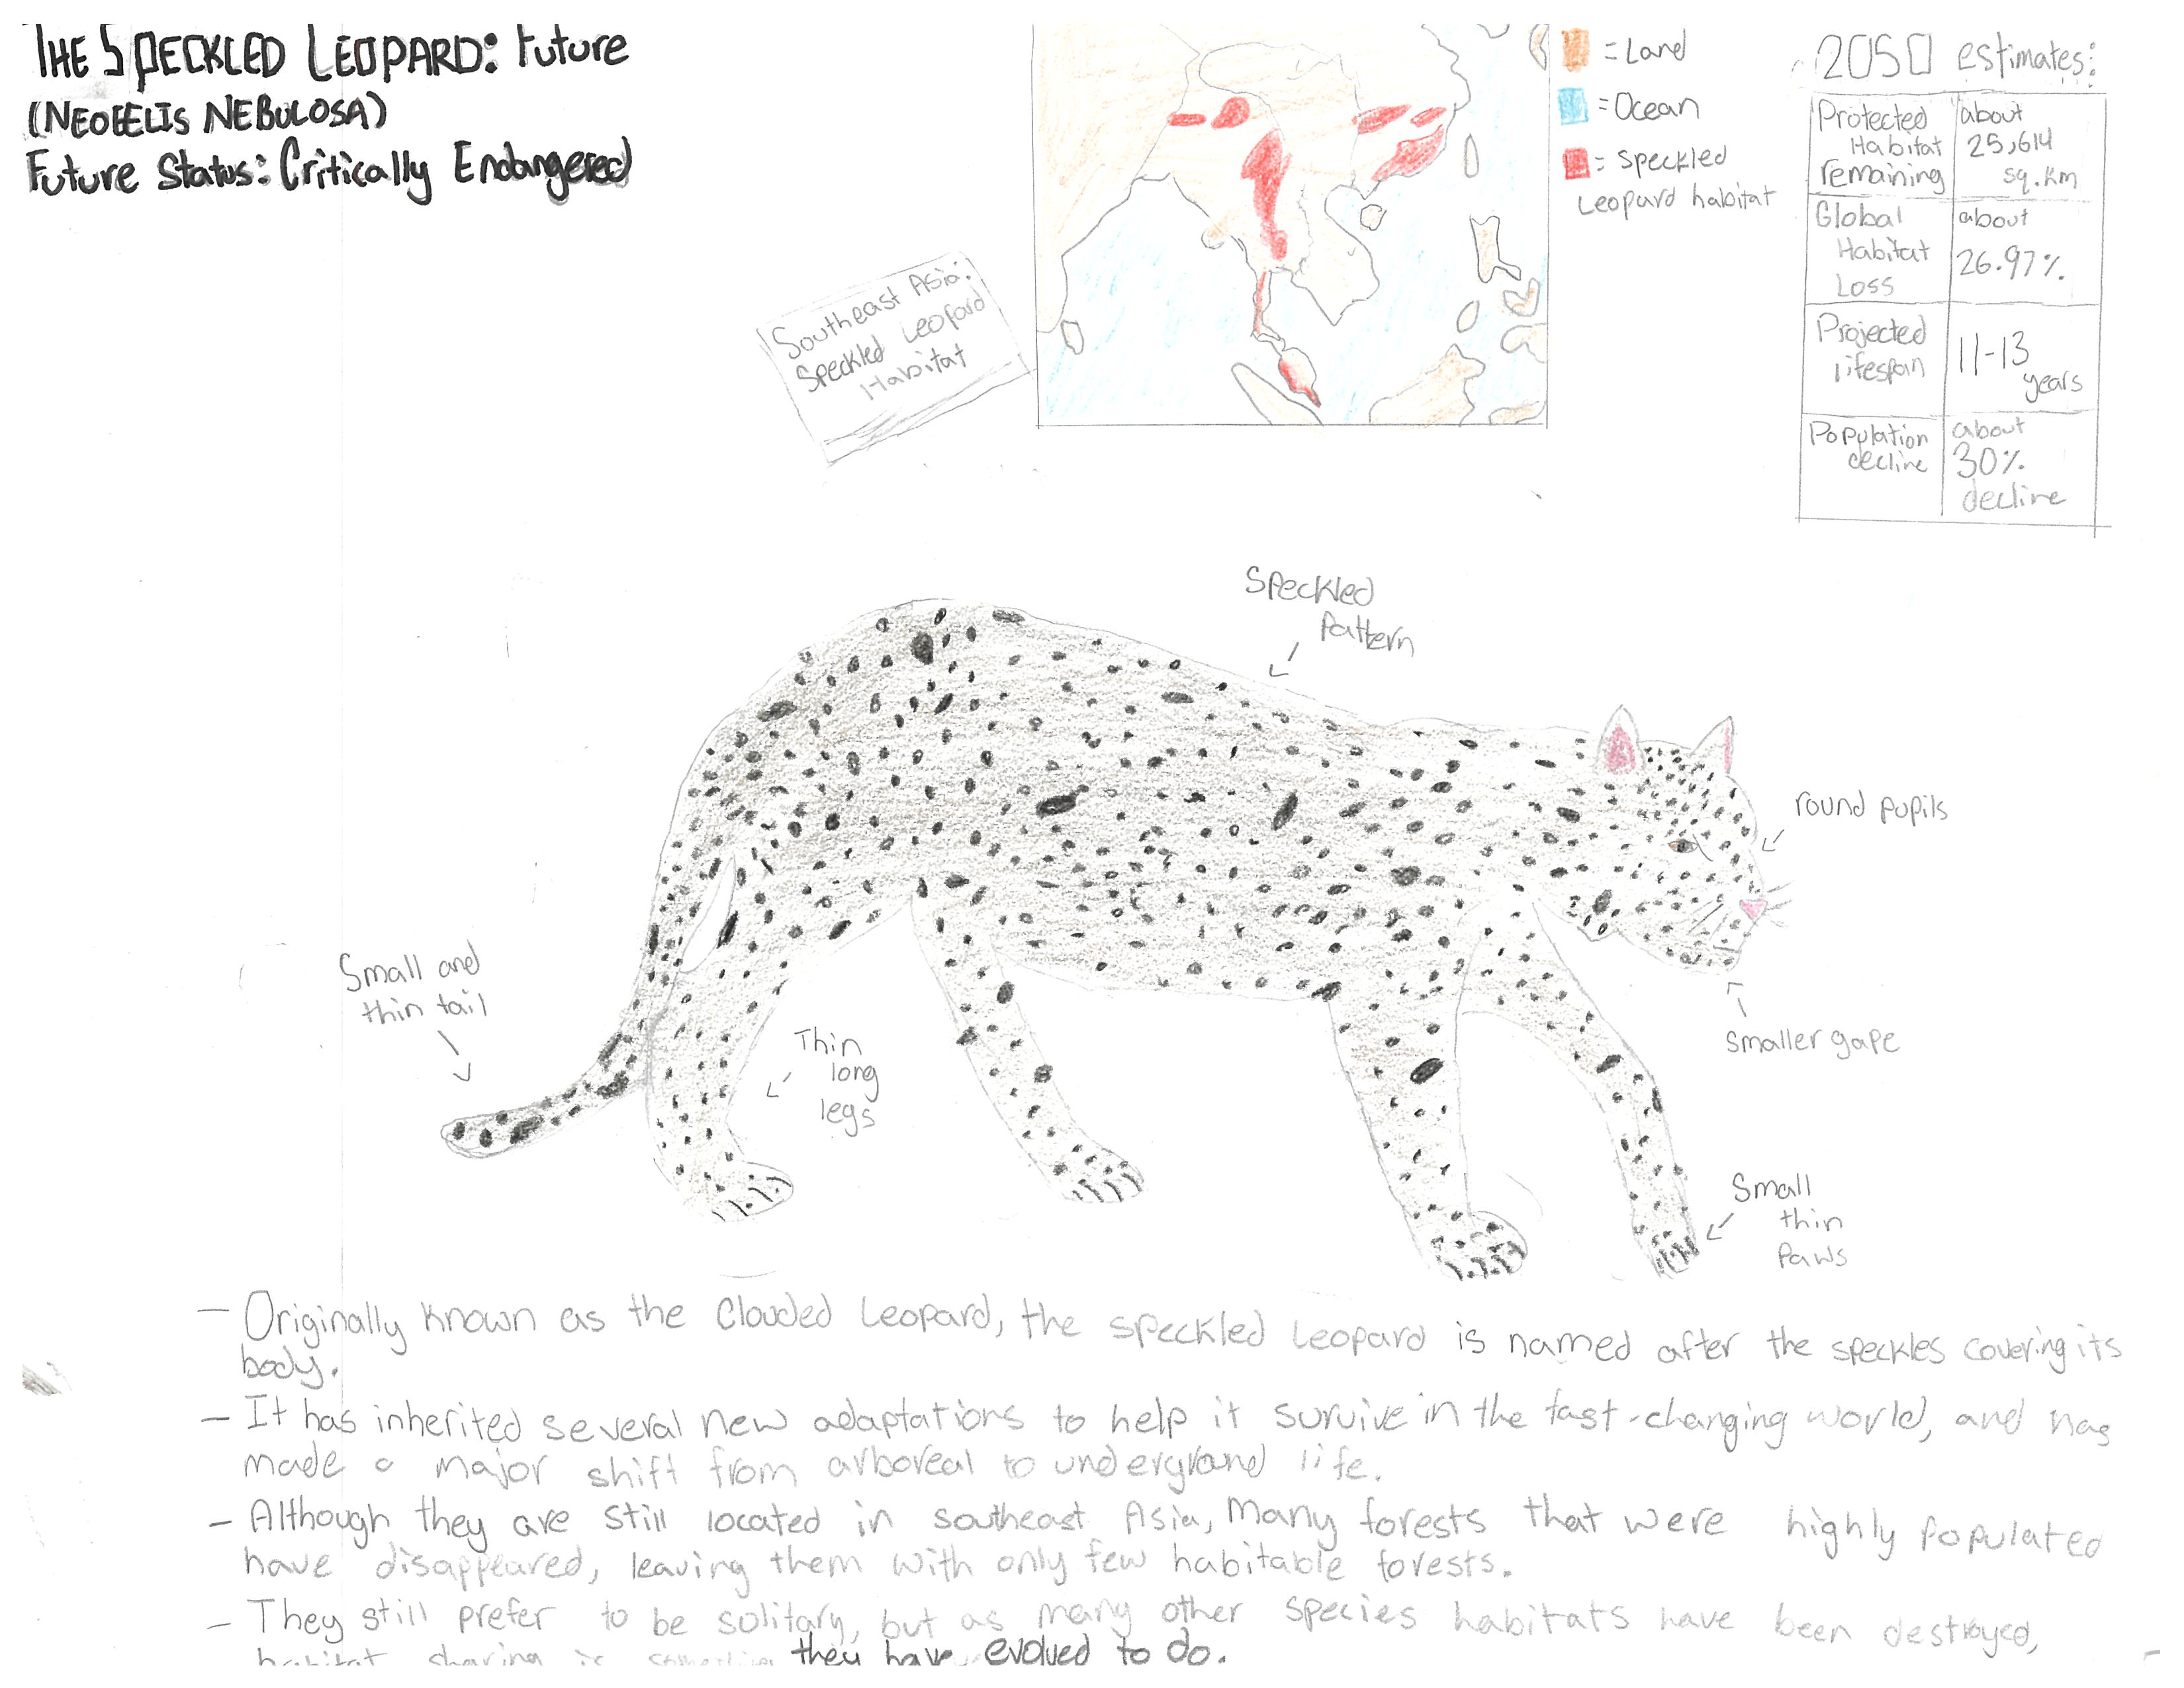 THE SPECKLED LEOPARD: Future
(NEOFELIS NEBULOSA)
Future Status: Critically Endangered
Southeast Asia:
Speckled Leopard
Habitat
= Land
= Ocean
= Speckled
Leopard habitat
2050 estimates:
Protected Habitat remaining
about 25,614 sq.km
Global Habitat Loss
about 26.97%
Projected lifespan
11-13 years
Population decline
about 30% decline
Speckled
Pattern
round pupils
smaller gape
Small and
thin tail
Thin
long
legs
Small
thin
Paws
- Originally known as the Clouded Leopard, the speckled Leopard is named after the speckles covering its
body.
- It has inherited several new adaptations to help it survive in the fast-changing world, and has
made a major shift from arboreal to underground life.
- Although they are still located in southeast Asia, Many forests that were highly populated
have disappeared, leaving them with only few habitable forests.
- They still prefer to be solitary, but as many other species habitats have been destroyed,
habitat sharing is something they have evolved to do.